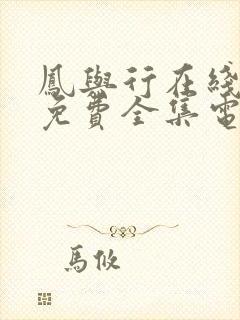 鳳與行在綫
免費全集電
馬攸